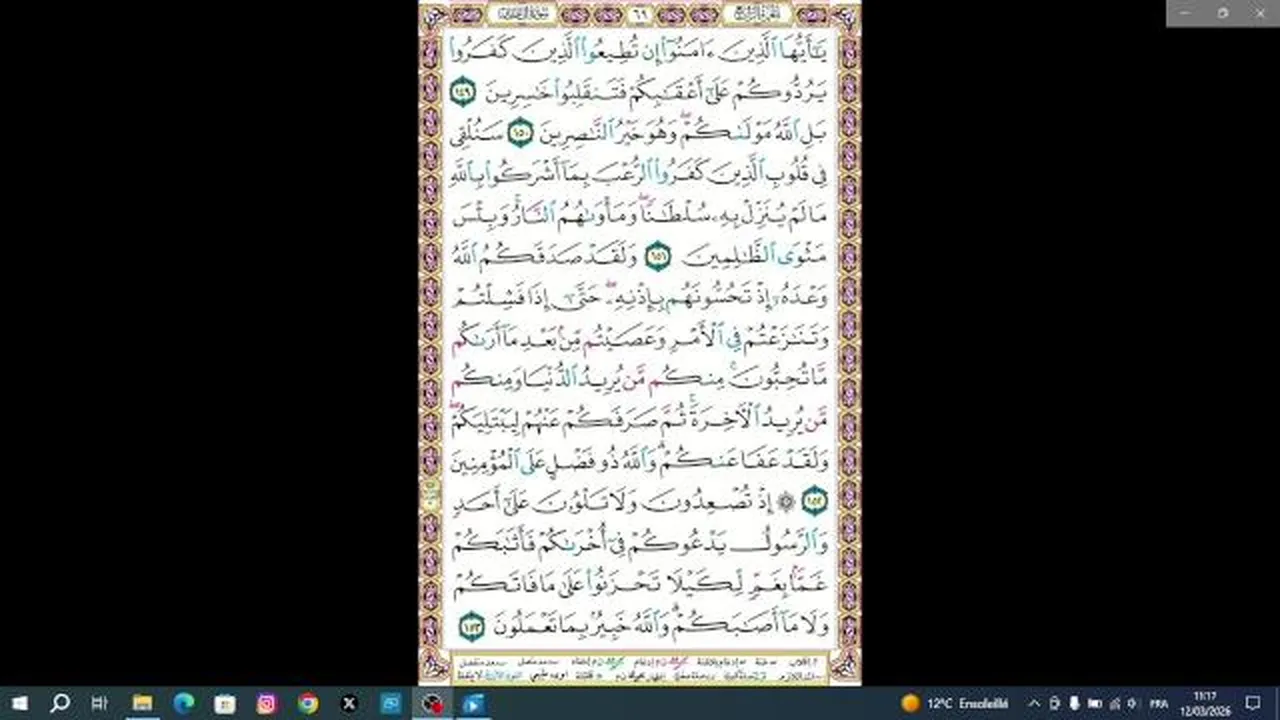 سورة آل عمران ٦٩ الجزء الرابع
يَـٰٓأَيُّهَا ٱلَّذِينَ ءَامَنُوٓا۟ إِن تُطِيعُوا۟ ٱلَّذِينَ كَفَرُوا۟
يَرُدُّوكُمْ عَلَىٰٓ أَعْقَـٰبِكُمْ فَتَنقَلِبُوا۟ خَـٰسِرِينَ ١٤٩
بَلِ ٱللَّهُ مَوْلَىٰكُمْ ۖ وَهُوَ خَيْرُ ٱلنَّـٰصِرِينَ ١٥٠ سَنُلْقِى
فِى قُلُوبِ ٱلَّذِينَ كَفَرُوا۟ ٱلرُّعْبَ بِمَآ أَشْرَكُوا۟ بِٱللَّهِ
مَا لَمْ يُنَزِّلْ بِهِۦ سُلْطَـٰنًا ۖ وَمَأْوَىٰهُمُ ٱلنَّارُ ۚ وَبِئْسَ
مَثْوَى ٱلظَّـٰلِمِينَ ١٥١ وَلَقَدْ صَدَقَكُمُ ٱللَّهُ
وَعْدَهُۥٓ إِذْ تَحُسُّونَهُم بِإِذْنِهِۦ ۖ حَتَّىٰٓ إِذَا فَشِلْتُمْ
وَتَنَـٰزَعْتُمْ فِى ٱلْأَمْرِ وَعَصَيْتُم مِّنۢ بَعْدِ مَآ أَرَىٰكُم
مَّا تُحِبُّونَ ۚ مِنكُم مَّن يُرِيدُ ٱلدُّنْيَا وَمِنكُم
مَّن يُرِيدُ ٱلْـَٔاخِرَةَ ۚ ثُمَّ صَرَفَكُمْ عَنْهُمْ لِيَبْتَلِيَكُمْ ۖ
وَلَقَدْ عَفَا عَنكُمْ ۗ وَٱللَّهُ ذُو فَضْلٍ عَلَى ٱلْمُؤْمِنِينَ
١٥٢ ۞ إِذْ تُصْعِدُونَ وَلَا تَلْوُۥنَ عَلَىٰٓ أَحَدٍ
وَٱلرَّسُولُ يَدْعُوكُمْ فِىٓ أُخْرَىٰكُمْ فَأَثَـٰبَكُمْ
غَمًّۢا بِغَمٍّ لِّكَيْلَا تَحْزَنُوا۟ عَلَىٰ مَا فَاتَكُمْ
وَلَا مَآ أَصَـٰبَكُمْ ۗ وَٱللَّهُ خَبِيرٌۢ بِمَا تَعْمَلُونَ ١٥٣
12°C Ensoleillé FRA 11:17
12/03/2026